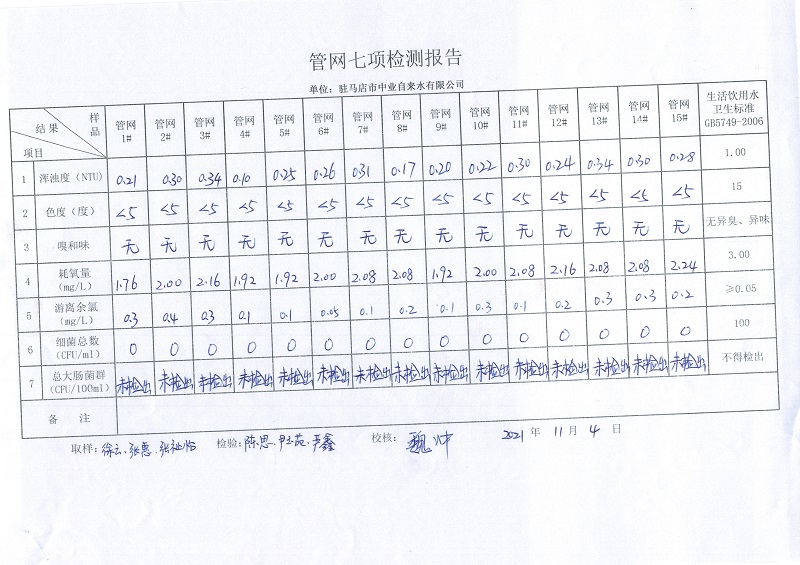 管网七项检测报告
单位：驻马店市中业自来水有限公司
结果 样品 项目 管网1# 管网2# 管网3# 管网4# 管网5# 管网6# 管网7# 管网8# 管网9# 管网10# 管网11# 管网12# 管网13# 管网14# 管网15# 生活饮用水卫生标准GB5749-2006
1 浑浊度（NTU） 0.21 0.30 0.34 0.10 0.25 0.26 0.31 0.17 0.20 0.22 0.30 0.24 0.34 0.30 0.28 1.00
2 色度（度） <5 <5 <5 <5 <5 <5 <5 <5 <5 <5 <5 <5 <5 <5 <5 15
3 嗅和味 无 无 无 无 无 无 无 无 无 无 无 无 无 无 无 无异臭、异味
4 耗氧量（mg/L） 1.76 2.00 2.16 1.92 1.92 2.00 2.08 2.08 1.92 2.00 2.08 2.16 2.08 2.08 2.24 3.00
5 游离余氯（mg/L） 0.3 0.4 0.3 0.1 0.1 0.05 0.1 0.2 0.1 0.3 0.1 0.2 0.3 0.3 0.2 ≥0.05
6 细菌总数（CFU/ml） 0 0 0 0 0 0 0 0 0 0 0 0 0 0 0 100
7 总大肠菌群（CFU/100ml） 未检出 未检出 未检出 未检出 未检出 未检出 未检出 未检出 未检出 未检出 未检出 未检出 未检出 未检出 未检出 不得检出
备 注
取样：徐云、张惠、张 检验：陈思、鑫 校核：魏冲 2021 年 11 月 4 日